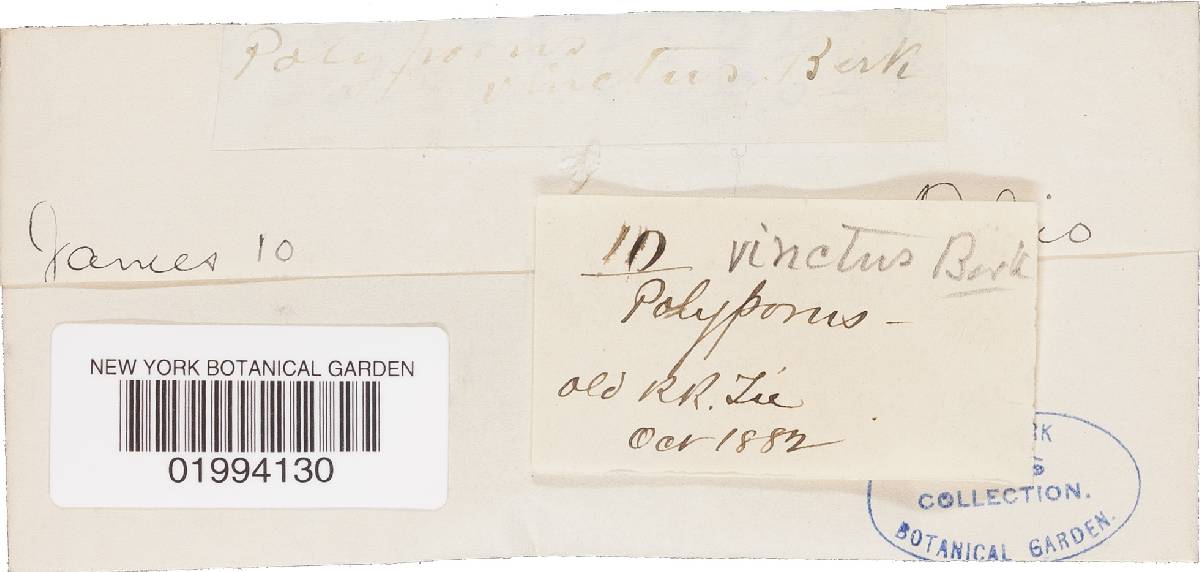 Polyporus
vinctus Berk
James 10
io
10 vinctus Berk
Polyporus -
old R.R. Tie
Oct 1882
NEW YORK BOTANICAL GARDEN
01994130
RK
COLLECTION.
BOTANICAL GARDEN.